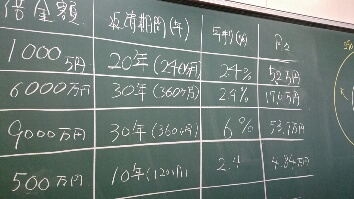 借金額 返済期間(年) 年利(%)
1000万円 20年(240ヶ月) 2.4% 5.2万円
6000万円 30年(360ヶ月) 2.4%
9000万円 30年(360ヶ月) 6%
500万円 10年(120ヶ月) 2.4